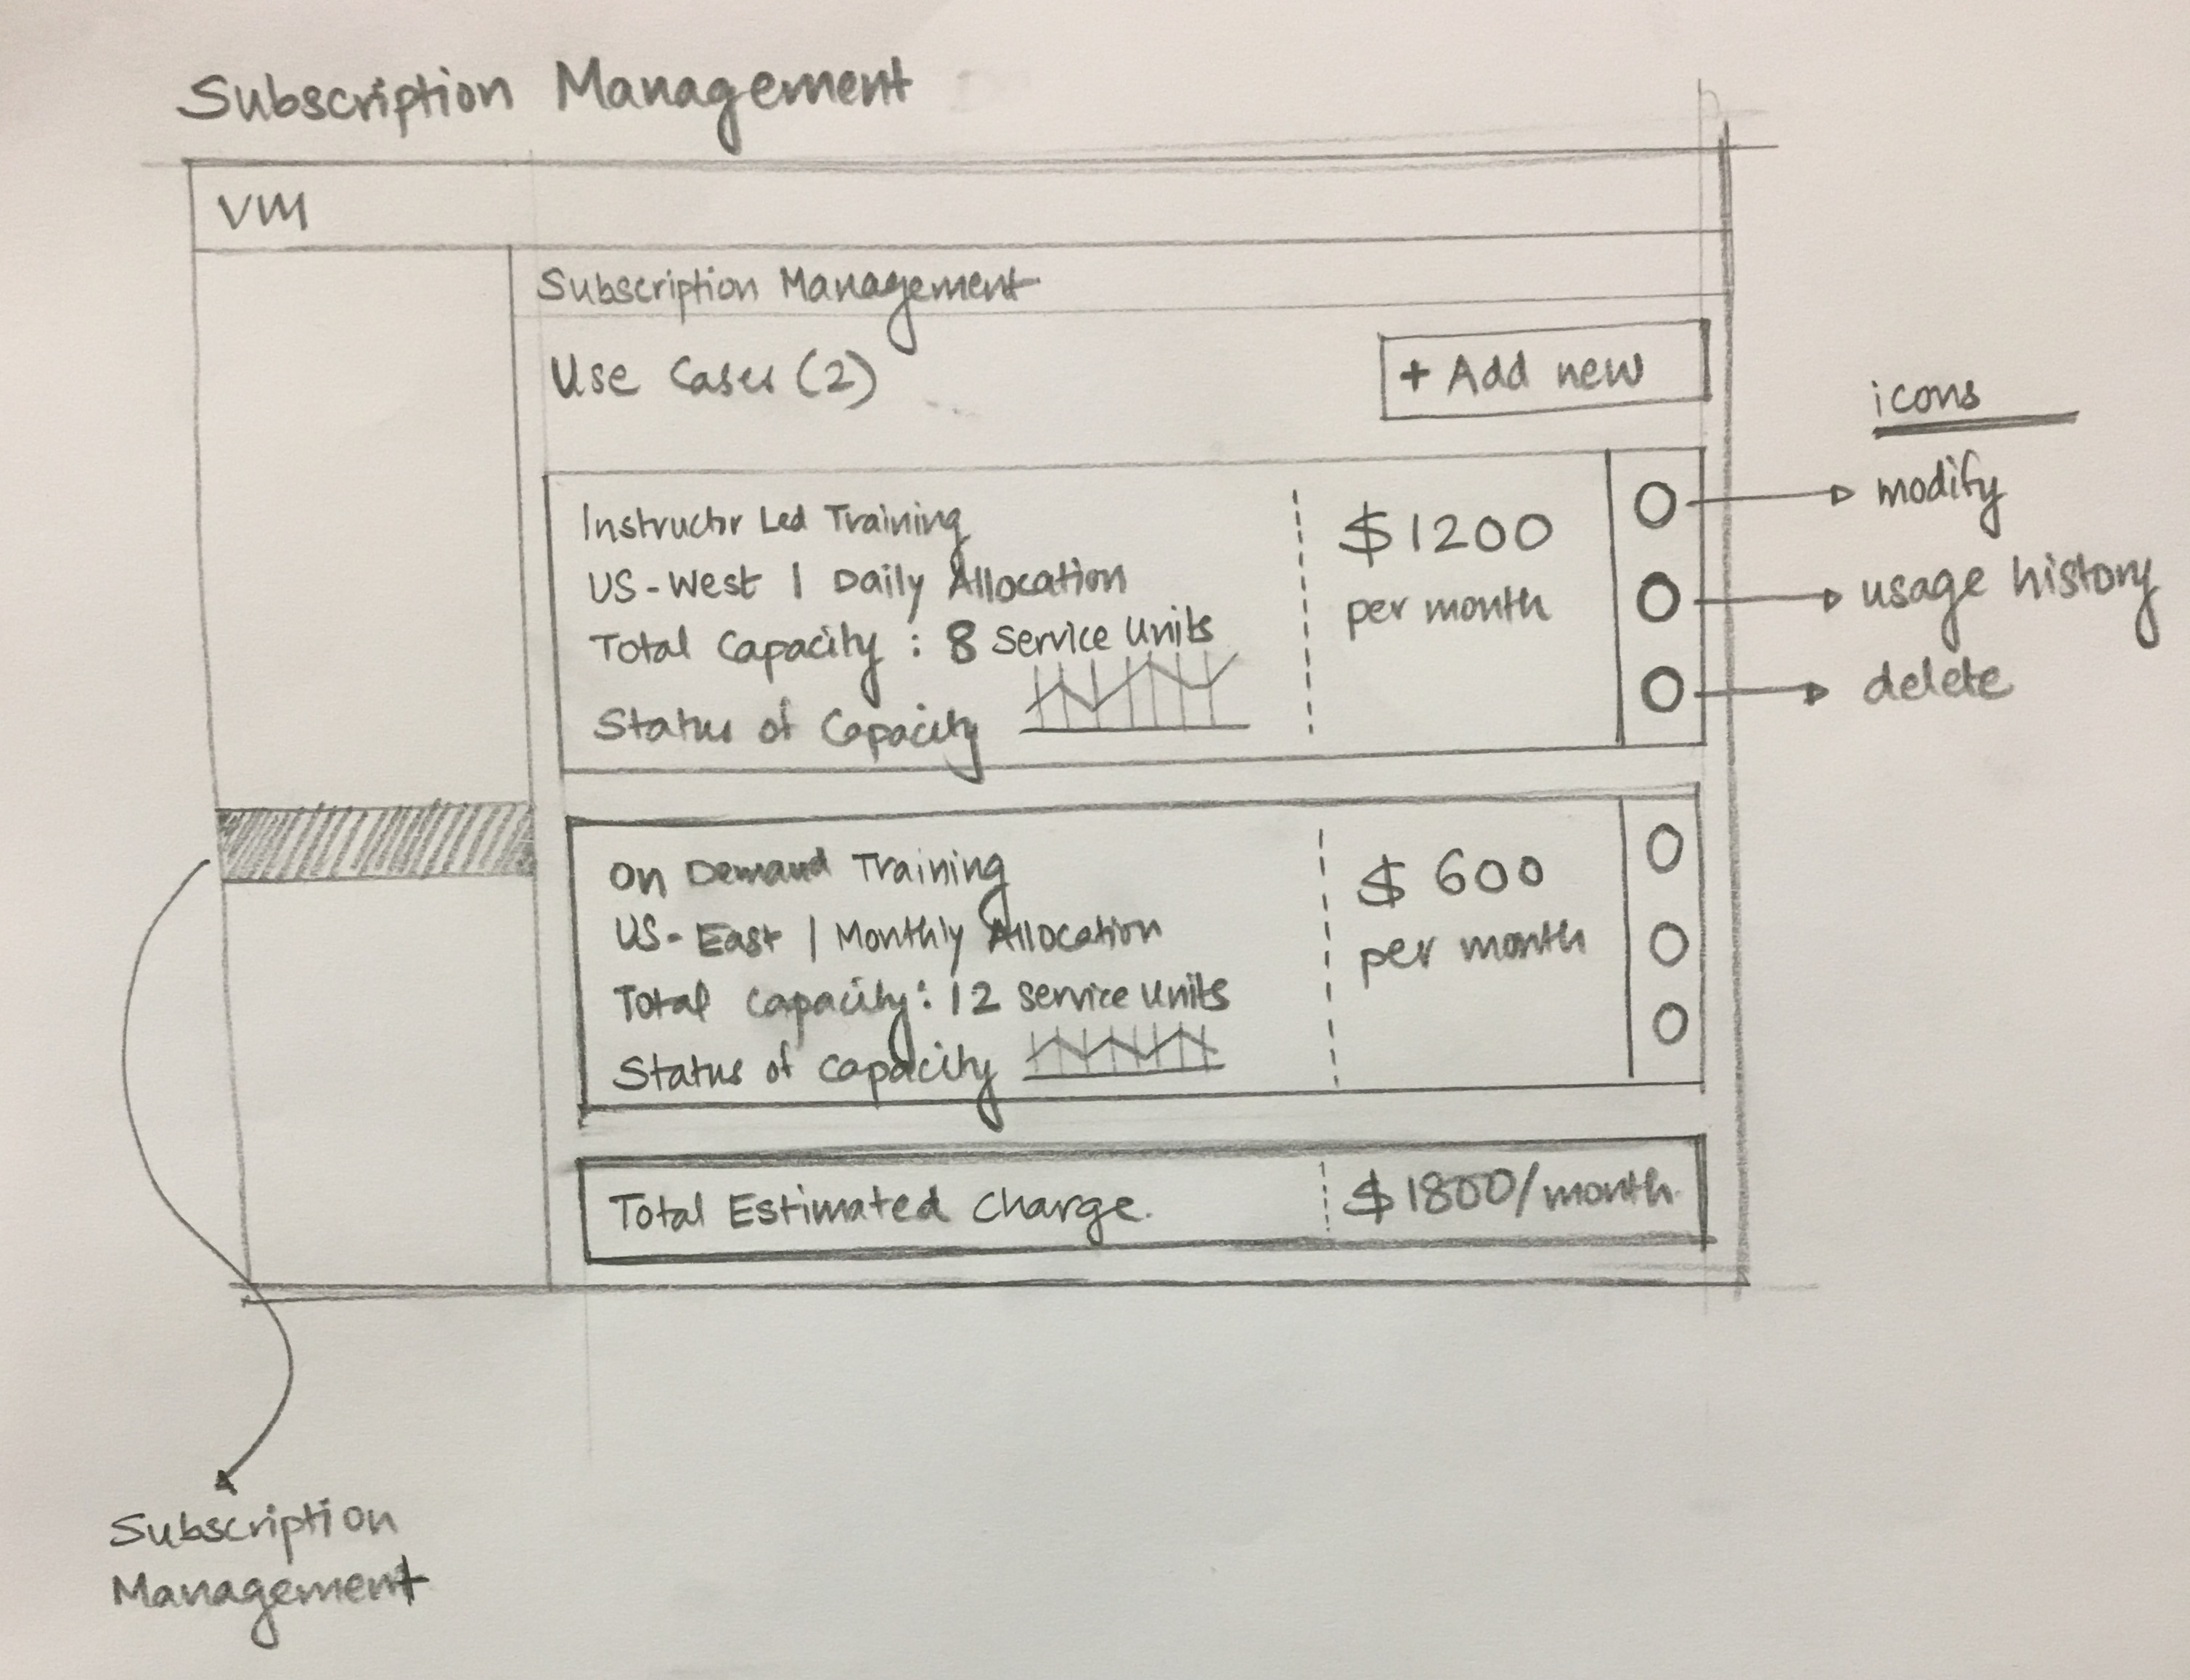 Subscription Management
VM
Subscription Management
Use Cases (2)
+ Add new
icons
Instructor Led Training
US-West | Daily Allocation
Total Capacity : 8 Service Units
Status of Capacity
$1200
per month
modify
usage history
delete
On Demand Training
US-East | Monthly Allocation
Total Capacity: 12 Service Units
Status of capacity
$ 600
per month
Total Estimated Charge.
$1800/month.
Subscription
Management